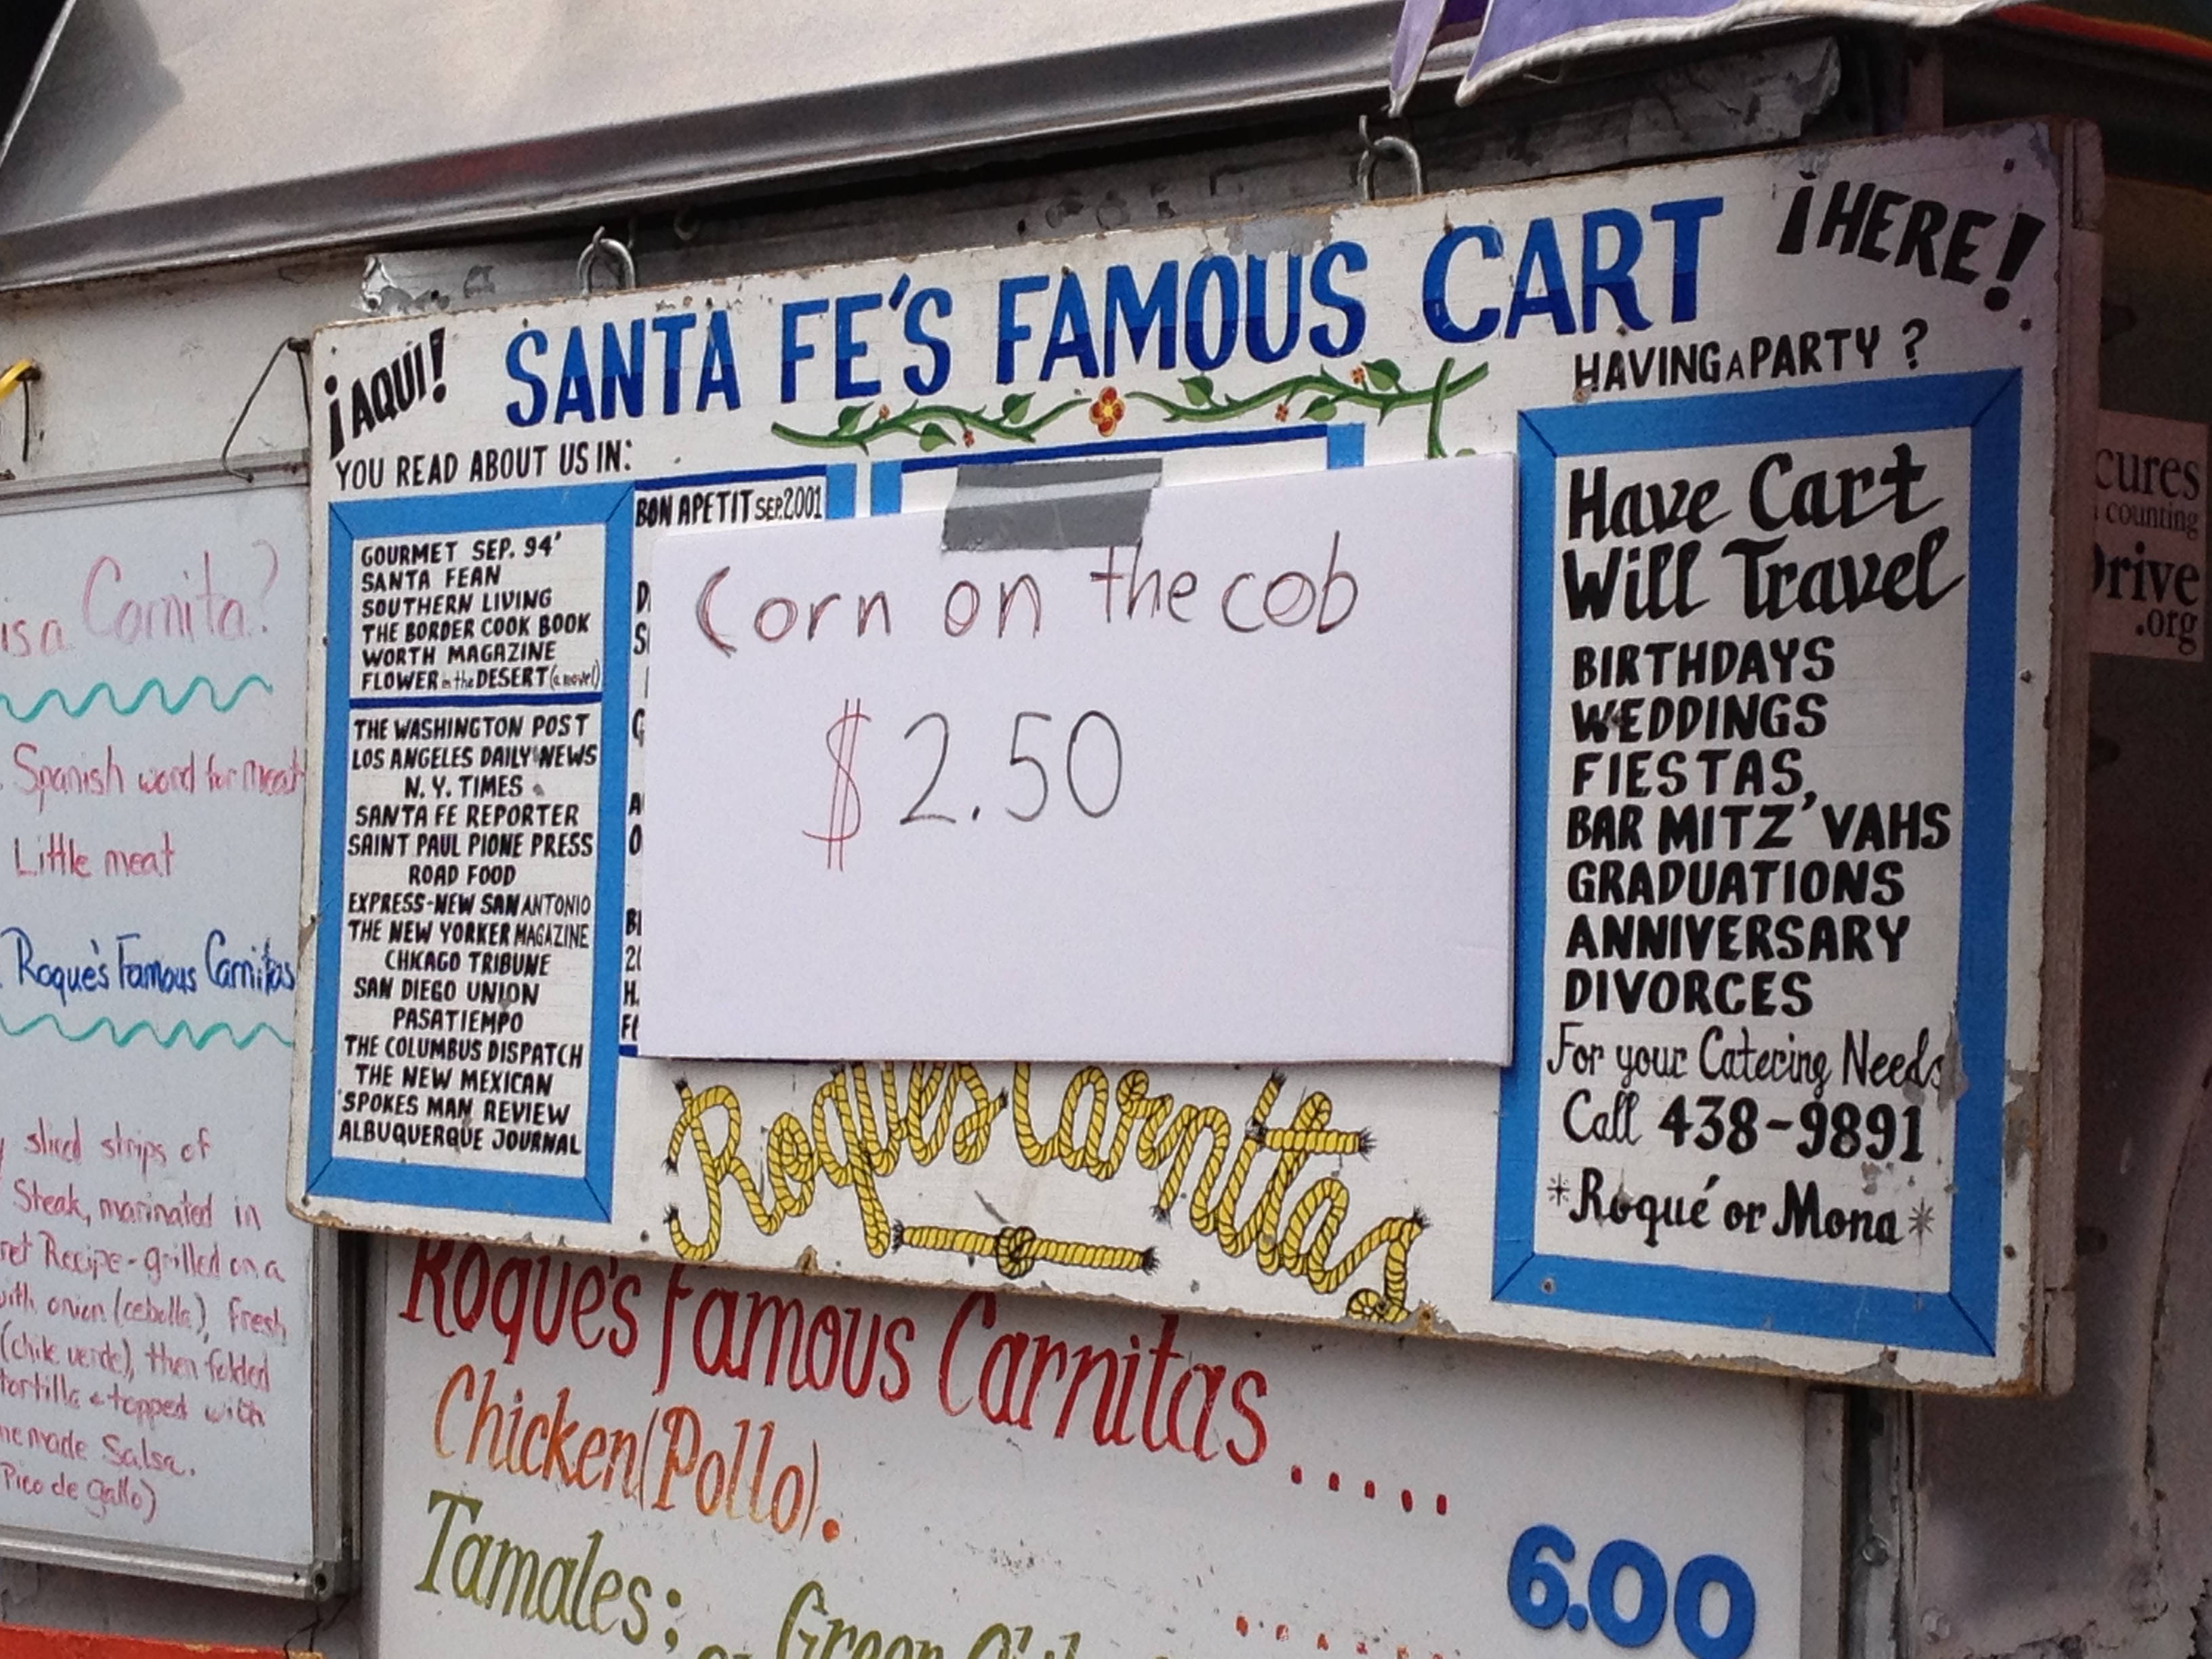 ¡AQUI!
SANTA FE'S FAMOUS CART
¡HERE!
YOU READ ABOUT US IN:
GOURMET SEP. 94'
SANTA FEAN
SOUTHERN LIVING
THE BORDER COOK BOOK
WORTH MAGAZINE
FLOWER in the DESERT (a novel)
THE WASHINGTON POST
LOS ANGELES DAILY NEWS
N. Y. TIMES
SANTA FE REPORTER
SAINT PAUL PIONE PRESS
ROAD FOOD
EXPRESS-NEW SAN ANTONIO
THE NEW YORKER MAGAZINE
CHICAGO TRIBUNE
SAN DIEGO UNION
PASATIEMPO
THE COLUMBUS DISPATCH
THE NEW MEXICAN
SPOKES MAN REVIEW
ALBUQUERQUE JOURNAL
BON APETIT SEP. 2001
Corn on the cob
$2.50
Roque's Carnitas
HAVING A PARTY ?
Have Cart
Will Travel
BIRTHDAYS
WEDDINGS
FIESTAS,
BAR MITZ'VAHS
GRADUATIONS
ANNIVERSARY
DIVORCES
For your Catering Needs
Call 438-9891
*Roqué or Mona*
is a Carnita?
Spanish word for meat
Little meat
Roque's Famous Carnitas
sliced strips of
Steak, marinated in
Recipe - grilled on a
with onion (cebolla), fresh
(chile verde), then folded
tortilla & topped with
made Salsa.
Pico de gallo)
Roque's Famous Carnitas.....
Chicken (Pollo).
6.00
Tamales:
Green
cures
counting
Drive
.org